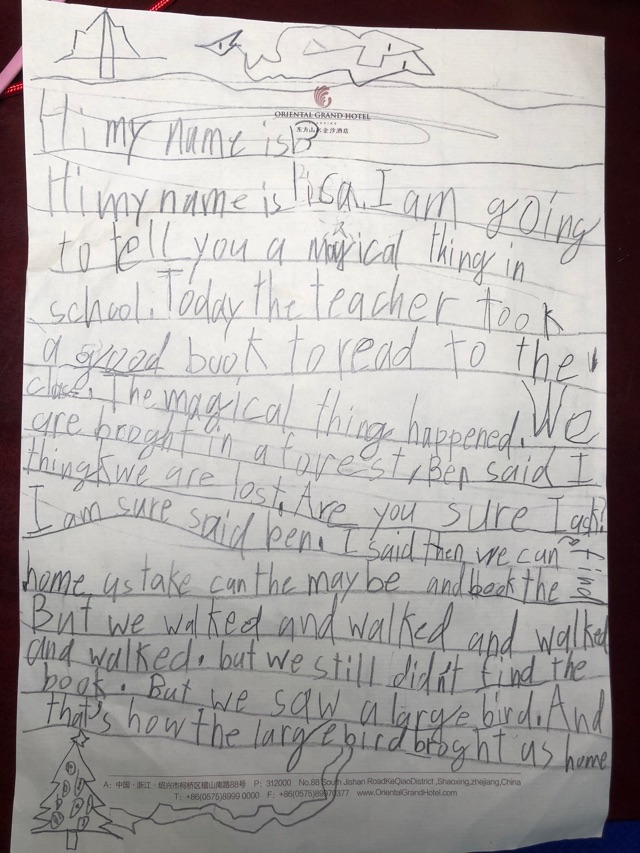 ORIENTAL GRAND HOTEL
东方山水金沙酒店
Hi my name is
Hi my name is lisa. I am going
to tell you a magical thing in
school. Today the teacher took
a good book to read to the
class. The magical thing happened. We
are broght in a forest, Ben said I
thingk we are lost. Are you sure I ask?
I am sure said ben. I said then we can find
home us take can the may be and book the
But we walked and walked and walked
and walked. but we still didn't find the
book. But we saw a large bird. And
that's how the large bird broght us home
A: 中国·浙江·绍兴市柯桥区稽山南路88号 P: 312000 No.88 South Jishan RoadKeQiaoDistrict,Shaoxing,zhejiang,China
T: +86(0575)8999 0000 F: +86(0575)89970377 www.OrientalGrandHotel.com